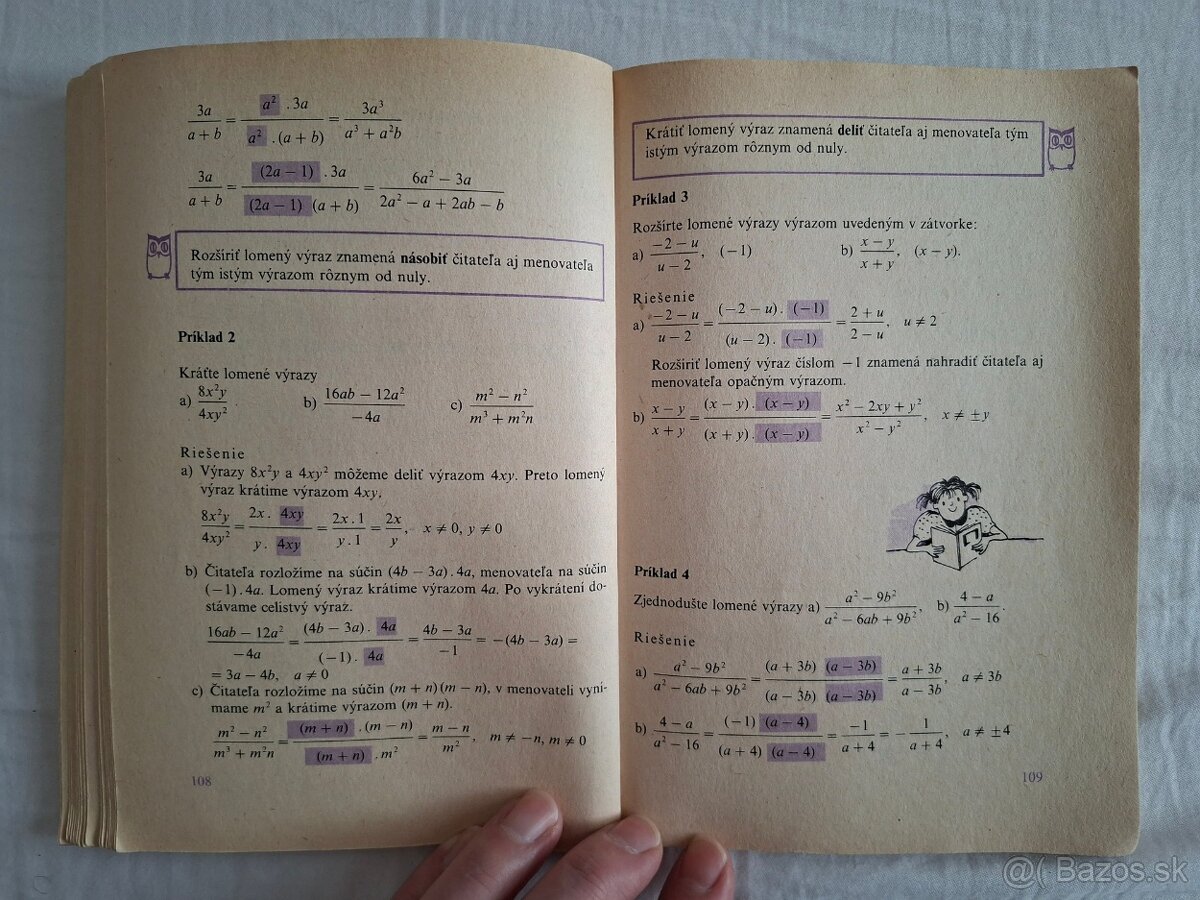 3a / (a + b) = a² . 3a / (a² . (a + b)) = 3a³ / (a³ + a²b)
3a / (a + b) = (2a − 1) . 3a / ((2a − 1) (a + b)) = (6a² − 3a) / (2a² − a + 2ab − b)
Rozšíriť lomený výraz znamená násobiť čitateľa aj menovateľa
tým istým výrazom rôznym od nuly.
Príklad 2
Kráťte lomené výrazy
a) 8x²y / 4xy² . b) (16ab − 12a²) / (−4a) c) (m² − n²) / (m³ + m²n)
Riešenie
a) Výrazy 8x²y a 4xy² môžeme deliť výrazom 4xy. Preto lomený
výraz krátime výrazom 4xy,
8x²y / 4xy² = 2x . 4xy / (y . 4xy) = 2x . 1 / (y . 1) = 2x / y, x ≠ 0, y ≠ 0
b) Čitateľa rozložíme na súčin (4b − 3a) . 4a, menovateľa na súčin
(−1) . 4a. Lomený výraz krátime výrazom 4a. Po vykrátení do-
stávame celistvý výraz.
(16ab − 12a²) / (−4a) = (4b − 3a) . 4a / ((−1) . 4a) = (4b − 3a) / (−1) = −(4b − 3a) =
= 3a − 4b, a ≠ 0
c) Čitateľa rozložíme na súčin (m + n)(m − n), v menovateli vyní-
mame m² a krátime výrazom (m + n).
(m² − n²) / (m³ + m²n) = (m + n) . (m − n) / ((m + n) . m²) = (m − n) / m², m ≠ −n, m ≠ 0
108
Krátiť lomený výraz znamená deliť čitateľa aj menovateľa tým
istým výrazom rôznym od nuly.
Príklad 3
Rozšírte lomené výrazy výrazom uvedeným v zátvorke:
a) (−2 − u) / (u − 2), (−1) b) (x − y) / (x + y), (x − y).
Riešenie
a) (−2 − u) / (u − 2) = (−2 − u) . (−1) / ((u − 2) . (−1)) = (2 + u) / (2 − u), u ≠ 2
Rozšíriť lomený výraz číslom −1 znamená nahradiť čitateľa aj
menovateľa opačným výrazom.
b) (x − y) / (x + y) = (x − y) . (x − y) / ((x + y) . (x − y)) = (x² − 2xy + y²) / (x² − y²), x ≠ ±y
Príklad 4
Zjednodušte lomené výrazy a) (a² − 9b²) / (a² − 6ab + 9b²), b) (4 − a) / (a² − 16).
Riešenie
a) (a² − 9b²) / (a² − 6ab + 9b²) = (a + 3b) (a − 3b) / ((a − 3b) (a − 3b)) = (a + 3b) / (a − 3b), a ≠ 3b
b) (4 − a) / (a² − 16) = (−1) (a − 4) / ((a + 4) (a − 4)) = −1 / (a + 4) = − 1 / (a + 4), a ≠ ±4
109
@( Bazos.sk